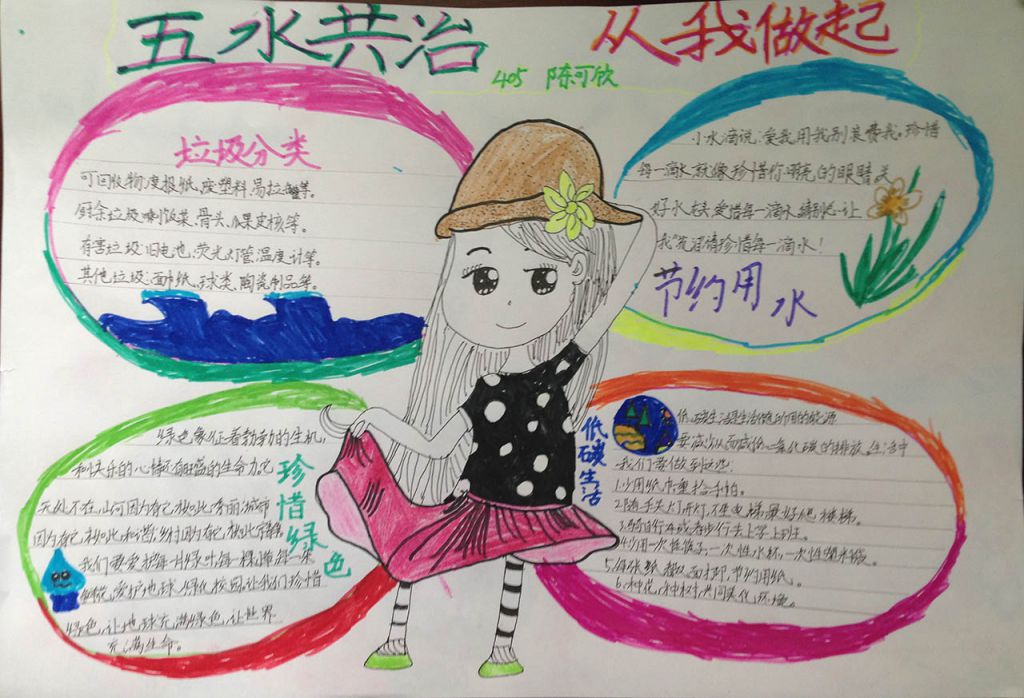 五水共治
从我做起
405 陈可欣
垃圾分类
可回收物:废报纸,废塑料,易拉罐等。
厨余垃圾:剩饭菜、骨头、瓜果皮核等。
有害垃圾:旧电池、荧光灯管、温度计等。
其他垃圾:面巾纸、球类、陶瓷制品等。
小水滴说:爱我用我别浪费我。珍惜
每一滴水就像珍惜你明亮的眼睛。关
好水龙头 爱惜每一滴水 让
请珍惜每一滴水!
节约用水
绿色象征着勃勃的生机,
和快乐的心情还有旺盛的生命力它
无处不在,山河因为有它,秀丽,城市
因为有它,和谐,乡村因为有它,
我们要爱护每一片绿叶每一棵
鲜花,爱护地球,绿化校园。让我们珍惜
绿色,让地球充满绿色,让世界
充满生命。
珍惜绿色
低碳生活
低碳生活是生活 时用的能源
要减少,从而减低二氧化碳的排放。生活中
我们要做到这些:
1.少用纸巾,重拾手帕。
2.随手关灯开灯,不坐电梯,最好 楼梯。
3.骑自行车或者步行去上学、上班。
4.少用一次性筷子,一次性水杯,一次性塑料袋。
5.每张纸都双面打印,节约用纸。
6.种花,种树,共同美化环境。